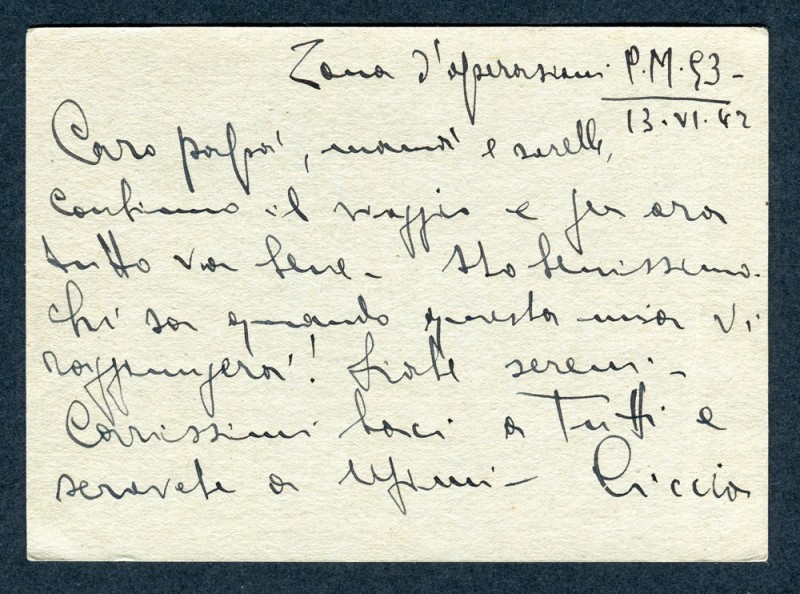 Zona d'operazioni P.M. 53 -
13. VI. 42
Caro papà, mamà e sorelle,
continuo il viaggio e per ora
tutto va bene - Sto benissimo.
Chi sa quando questa mia vi
raggiungerà! Siate sereni -
Carissimi baci a Tutti e
scrivete a